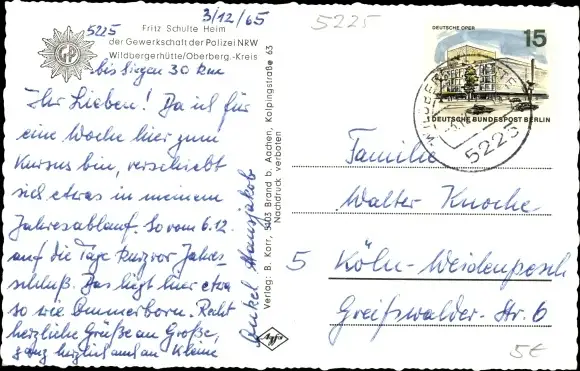 3/12/65
5225
5225
Fritz Schulte Heim
der Gewerkschaft der Polizei NRW
Wildbergerhütte/Oberberg.-Kreis
bis Siegen 30 km
Ihr Lieben! Da ich für
eine Woche hier zum
Kursus bin, verschiebt
sich etwas in meinem
Jahresablauf. So vom 6.12.
auf die Tage kurz vor Jahres-
schluß. Das liegt hier etwa
so wie Dommerborn. Recht
herzliche Grüße an Große,
ganz herzlich auch an Kleine
Onkel Hansjakob
Verlag: B. Korr, 5103 Brand b. Aachen, Kolpingstraße 63
Nachdruck verboten
Agfa
DEUTSCHE OPER
15
DEUTSCHE BUNDESPOST BERLIN
5225
Familie
Walter Knoche
5 Köln-Weidenpesch
Greifswalder-Str. 6
5€